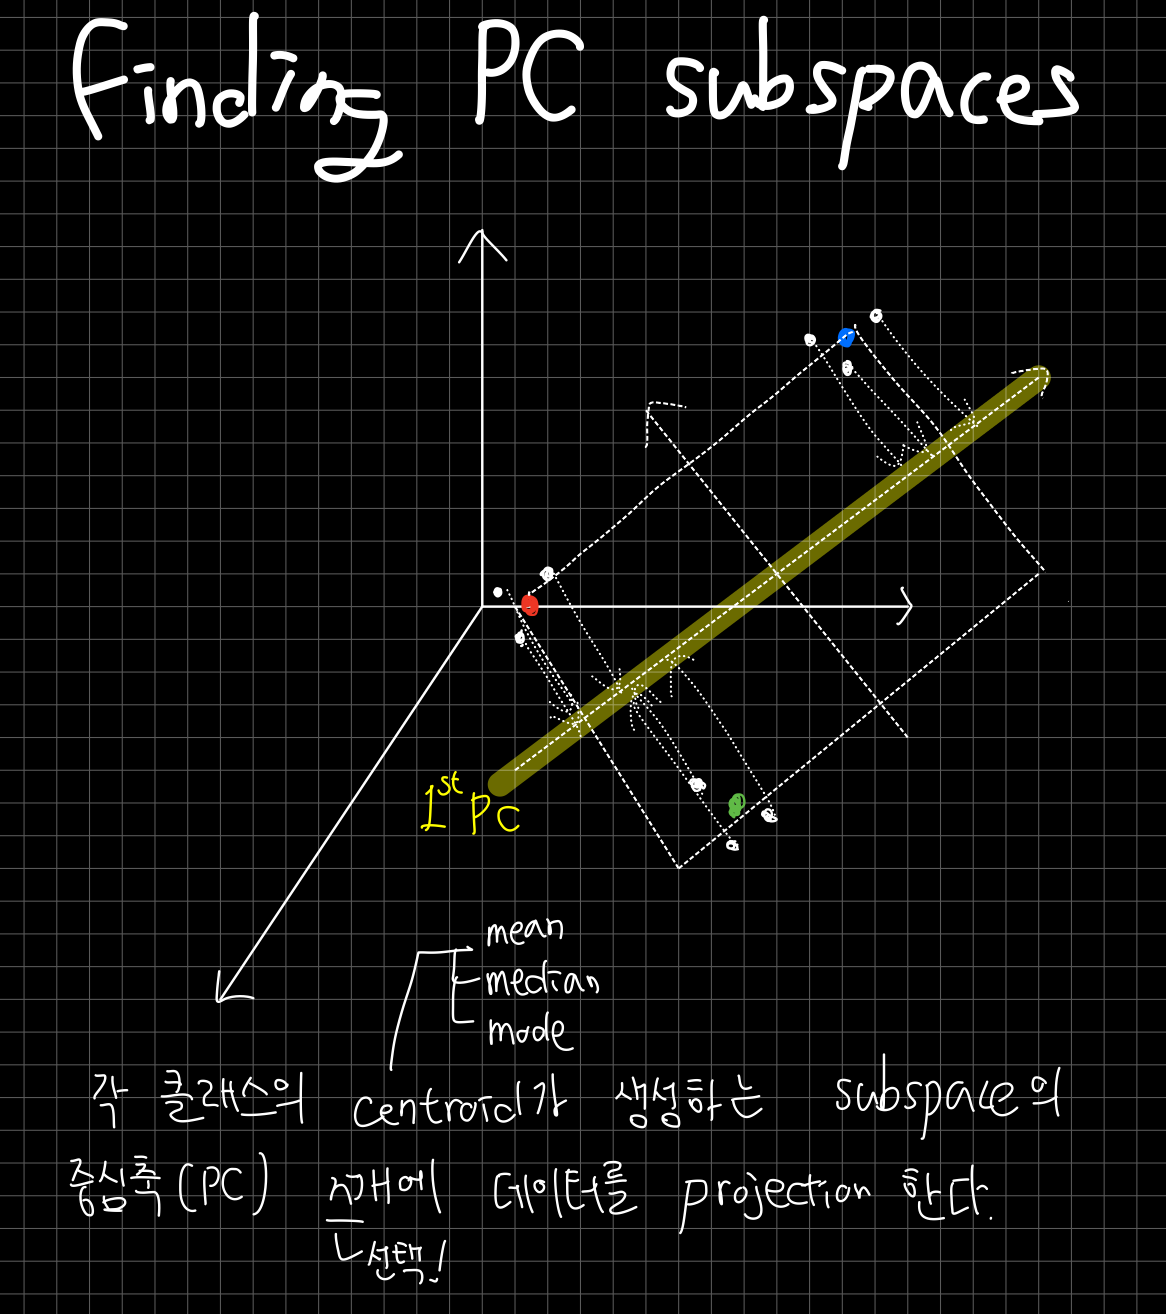 Finding PC subspaces
1st PC
mean
median
mode
각 클래스의 centroid가 생성하는 subspace의
중심축(PC) 개에 데이터를 projection 한다.
선택!